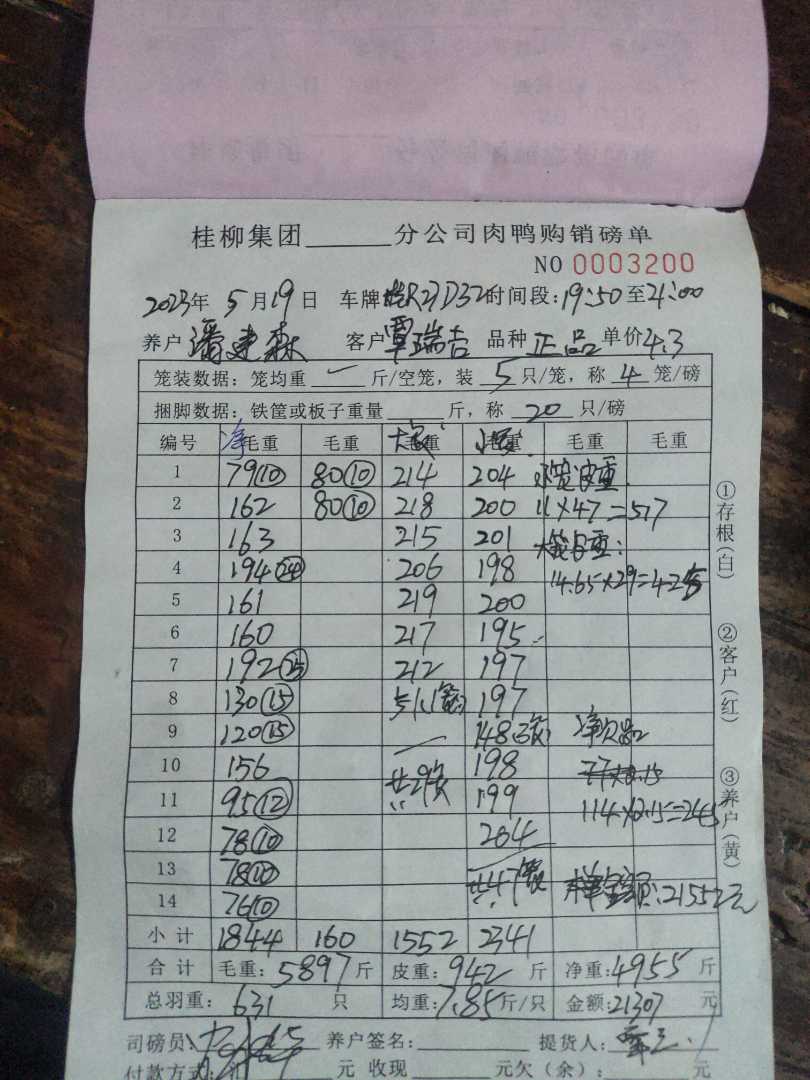 桂柳集团______分公司肉鸭购销磅单
NO 0003200
2023年 5月19日 车牌 R27D32 时间段:19:50至21:00
养户 潘建森 客户 覃瑞吉 品种 正品 单价 4.3
笼装数据:笼均重 ✓ 斤/空笼,装 5 只/笼,称 4 笼/磅
捆脚数据:铁筐或板子重量 斤,称 20 只/磅
编号 净毛重 毛重 毛重 毛重 毛重 毛重
1 79⑩ 80⑩ 214 204
2 162 80⑩ 218 200 11×47=517
3 163 215 201
4 194㉔ 206 198 14.65×29=425
5 161 219 200
6 160 217 195
7 192㉕ 212 197
8 130⑮ 197
9 120⑮ 148 净次品
10 156 共29 198
11 95⑫ 199 114×2.15=245
12 78⑩ 204
13 78⑩ 共47
14 76⑩ 21552元
小计 1844 160 1552 2341
合计 毛重:5897斤 皮重:942斤 净重:4955斤
总羽重:631只 均重:7.85斤/只 金额:21307元
司磅员: 养户签名: 提货人:
付款方式: 元 收现 元欠(余): 元
①存根(白)
②客户(红)
③养户(黄)